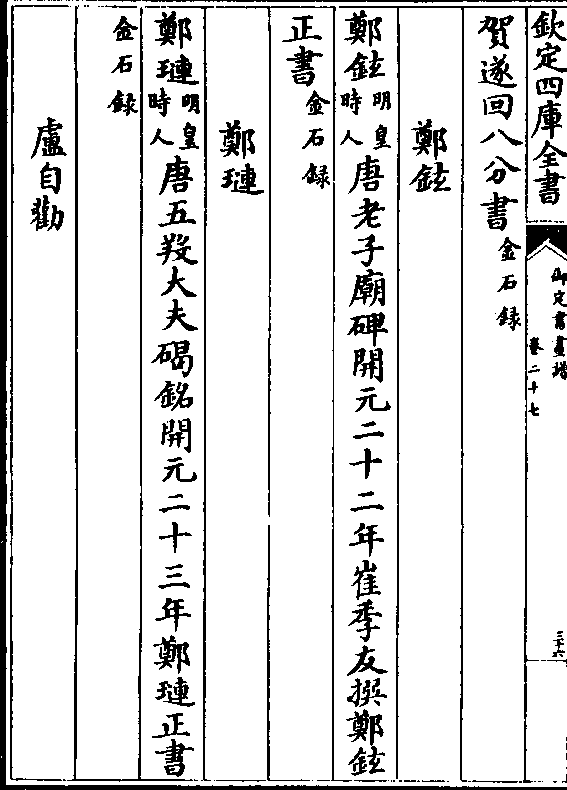 欽定四庫全書
御定書畫譜
卷二十七
三十六
賀遂回八分書金石録
鄭鉉
鄭鉉明皇時人唐老子廟碑開元二十二年崔季友撰鄭鉉
正書金石録
鄭璉
鄭璉明皇時人唐五羖大夫碣銘開元二十三年鄭璉正書
金石録
盧自勸